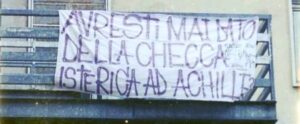 AVRESTI MAI DATO
DELLA CHECCA
ISTERICA AD ACHILLE